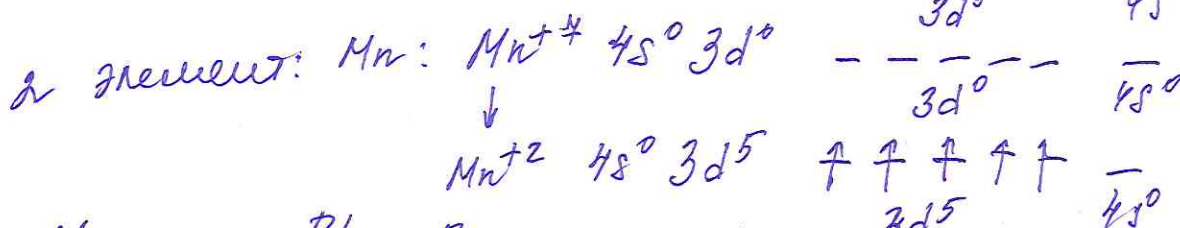 3d⁰ 4s
2 элемент: Mn: Mn⁺⁷ 4s⁰ 3d⁰ – – – – – –
3d⁰ 4s⁰
↓
Mn⁺² 4s⁰ 3d⁵ ↑ ↑ ↑ ↑ ↑ –
3d⁵ 4s⁰